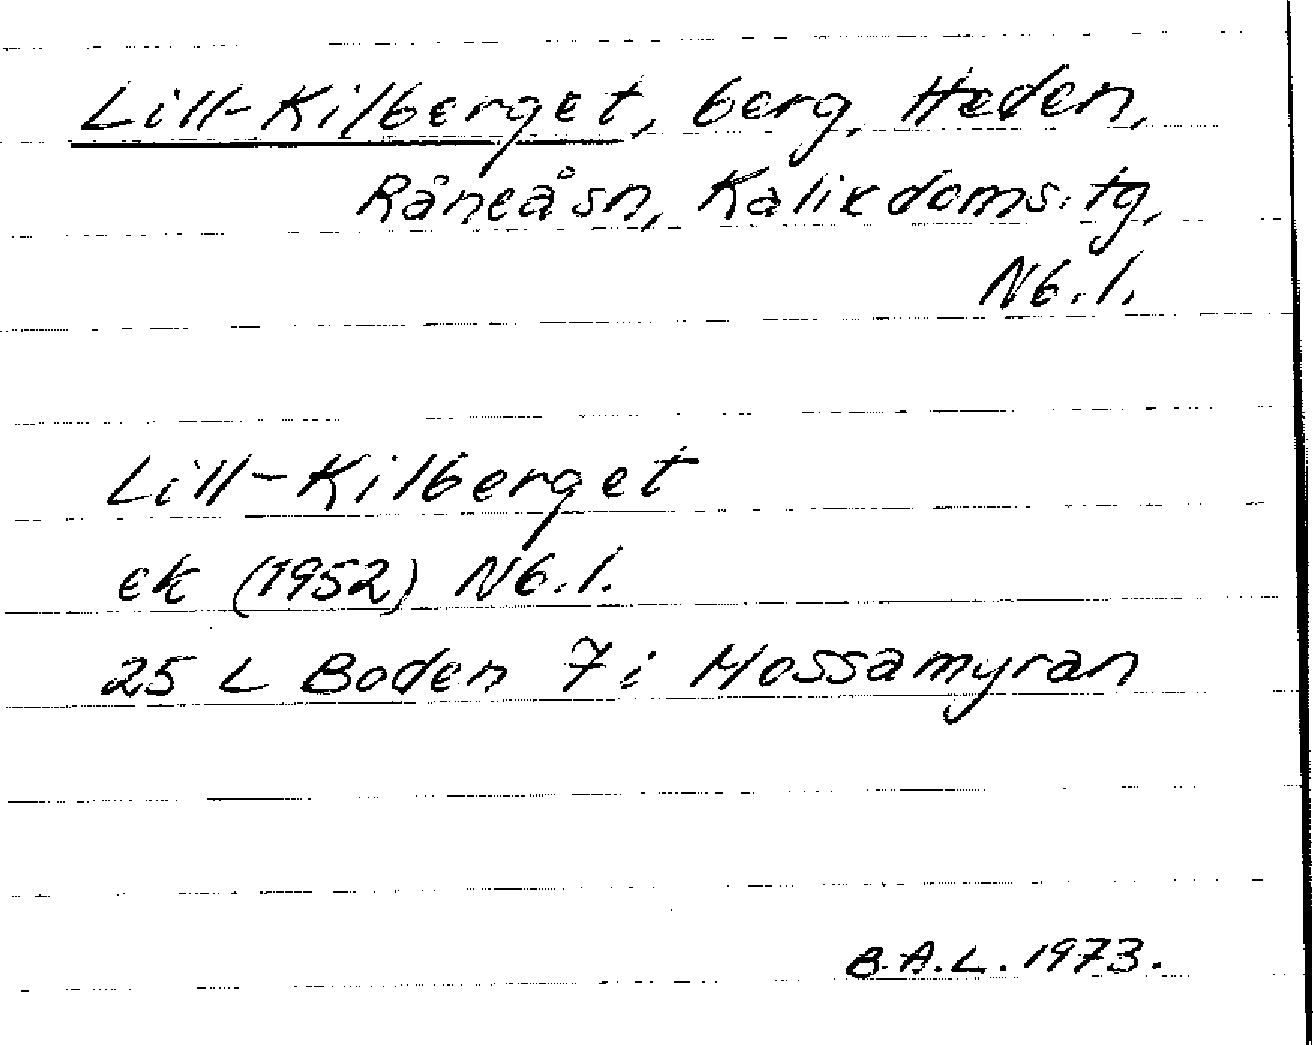 Lill-Kilberget, berg, Heden,
Råneå sn, Kalix doms. tg,
Nb.l.
Lill-Kilberget
ek (1952) Nb.l.
25 L Boden 7i Mossamyran
B.A.L. 1973.